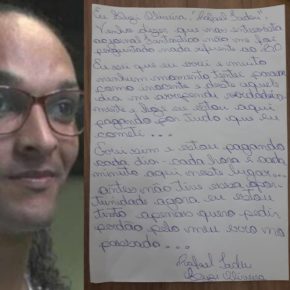 Eu Luizi Oliveira, "Rafael Sadai"
Venho dizer que nas entrevista
nao me foi
perguntado nada referente ao
Eu sei que eu errei e muito
nenhum momento tentei passar
como inocente e desde aquele
dia me arrependi verdadeira-
mente e hoje eu estou aqui
pagando por tudo que eu
cometi...
Errei sim e estou pagando
cada dia cada hora e cada
minuto aqui neste lugar...
antes não tive essa opor-
tunidade agora eu estou
tento apenas quero pedir
perdão pelo meu erro no
passado...
Rafael
Oliveira